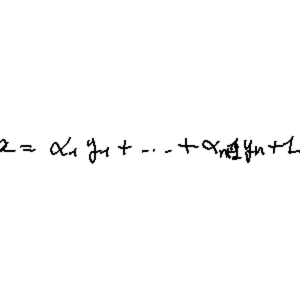 x = α₁ y₁ + ... + αₙ yₙ + L